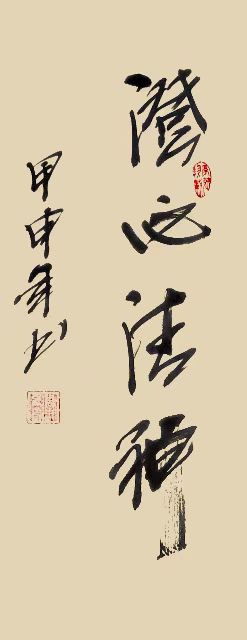 澄心清神
甲申年书